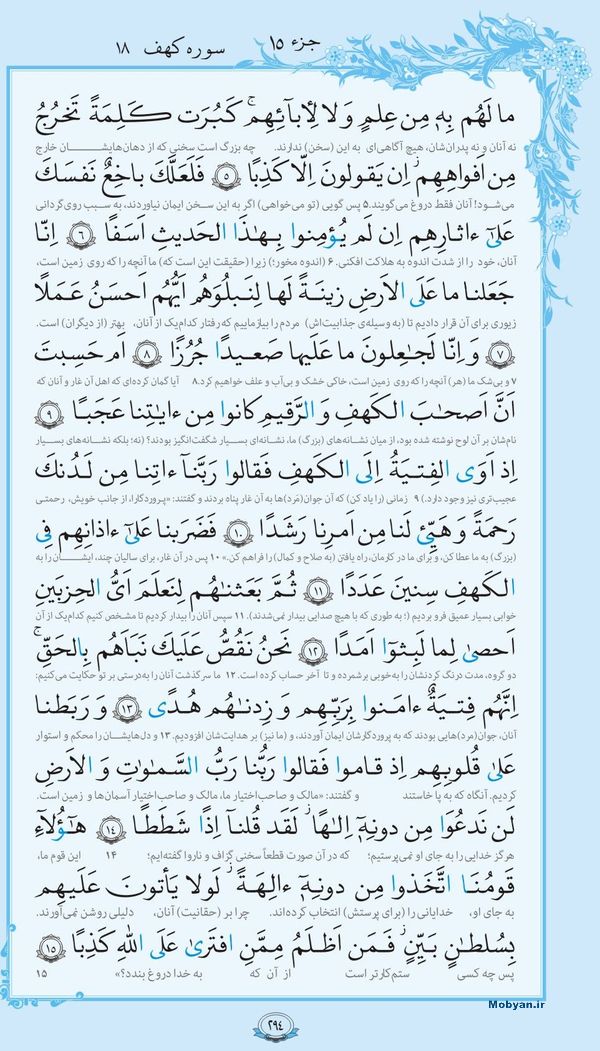 جزء ۱۵
سوره کهف ۱۸
ما لَهُم بِهٖ مِن عِلمٍ وَلا لِأبآئِهِم ۚ كَبُرَت كَلِمَةً تَخرُجُ
نه آنان و نه پدران‌شان، هیچ آگاهی‌ای به این (سخن) ندارند. چه بزرگ است سخنی که از دهان‌هایشان خارج
مِن اَفواهِهِم ۚ اِن يَقولونَ اِلّا كَذِبًا ﴿٥﴾ فَلَعَلَّكَ باخِعٌ نَفسَكَ
می‌شود! آنان فقط دروغ می‌گویند. ۵ پس گویی (تو می‌خواهی) اگر به این سخن ایمان نیاوردند، به سبب روی‌گردانی
عَلىٰٓ ءاثارِهِم اِن لَم يُؤمِنوا بِهـٰذَا الحَديثِ اَسَفًا ﴿٦﴾ اِنّا
آنان، خود را از شدت اندوه به هلاکت افکنی. ۶ (اندوه مخور؛) زیرا (حقیقت این است که) ما آنچه را که روی زمین است،
جَعَلنا ما عَلَى الاَرضِ زينَةً لَها لِنَبلُوَهُم اَيُّهُم اَحسَنُ عَمَلًا
زیوری برای آن قرار دادیم تا (به وسیله‌ی جذابیت‌اش) مردم را بیازماییم که رفتار کدام‌یک از آنان، بهتر (از دیگران) است.
﴿٧﴾ وَ اِنّا لَجـٰعِلونَ ما عَلَيها صَعيدًا جُرُزًا ﴿٨﴾ اَم حَسِبتَ
۷ و بی‌شک ما (هر) آنچه را که روی زمین است، خاکی خشک و بی‌آب و علف خواهیم کرد. ۸ آیا گمان کرده‌ای که اهل آن غار و آنان که
اَنَّ اَصحـٰبَ الكَهفِ وَ الرَّقيمِ كانوا مِن ءايـٰتِنا عَجَبًا ﴿٩﴾
نام‌شان بر آن لوح نوشته شده بود، از میان نشانه‌های (بزرگ) ما، نشانه‌ای بسیار شگفت‌انگیز بودند؟ (نه؛ بلکه نشانه‌های بسیار
اِذ اَوَى الفِتيَةُ اِلَى الكَهفِ فَقالوا رَبَّنا ءاتِنا مِن لَدُنكَ
عجیب‌تری نیز وجود دارد.) ۹ زمانی (را یاد کن) که آن جوان(مَرد)ها به آن غار پناه بردند و گفتند: «پروردگارا، از جانب خویش، رحمتی
رَحمَةً وَ هَيِّئ لَنا مِن اَمرِنا رَشَدًا ﴿١٠﴾ فَضَرَبنا عَلىٰٓ ءاذانِهِم فِى
(بزرگ) به ما عطا کن، و برای ما در کارمان، راه یافتن (به صلاح و کمال) را فراهم کن.» ۱۰ پس در آن غار، برای سالیان چند، ایشان را به
الكَهفِ سِنينَ عَدَدًا ﴿١١﴾ ثُمَّ بَعَثنـٰهُم لِنَعلَمَ اَىُّ الحِزبَينِ
خوابی بسیار عمیق فرو بردیم (؛ به طوری که با هیچ صدایی بیدار نمی‌شدند). ۱۱ سپس آنان را بیدار کردیم تا مشخص کنیم کدام‌یک از آن
اَحصىٰ لِما لَبِثوٓا اَمَدًا ﴿١٢﴾ نَحنُ نَقُصُّ عَلَيكَ نَبَاَهُم بِالحَقِّ ۚ
دو گروه، مدت درنگ کردنشان را به‌خوبی برشمرده و تا آخر حساب کرده است. ۱۲ ما سرگذشت آنان را به‌درستی بر تو حکایت می‌کنیم:
اِنَّهُم فِتيَةٌ ءامَنوا بِرَبِّهِم وَ زِدنـٰهُم هُدًى ﴿١٣﴾ وَ رَبَطنا
آنان، جوان(مرد)هایی بودند که به پروردگارشان ایمان آوردند، و (ما نیز) بر هدایت‌شان افزودیم. ۱۳ و دل‌هایشان را محکم و استوار
عَلىٰ قُلوبِهِم اِذ قاموا فَقالوا رَبُّنا رَبُّ السَّمـٰوٰتِ وَ الاَرضِ
کردیم. آنگاه که به پا خاستند و گفتند: «مالک و صاحب‌اختیار ما، مالک و صاحب‌اختیار آسمان‌ها و زمین است.
لَن نَدعُوَا مِن دونِهٖٓ اِلـٰهًا ۖ لَقَد قُلنآ اِذًا شَطَطًا ﴿١٤﴾ هـٰٓؤُلآءِ
هرگز خدایی را به جای او نمی‌پرستیم؛ که در آن صورت قطعاً سخنی گزاف و ناروا گفته‌ایم؛ ۱۴ این قوم ما،
قَومُنَا اتَّخَذوا مِن دونِهٖٓ ءالِهَةً ۖ لَولا يَأتونَ عَلَيهِم
به جای او، خدایانی را (برای پرستش) انتخاب کرده‌اند. چرا بر (حقانیت) آنان، دلیلی روشن نمی‌آورند.
بِسُلطـٰنٍ بَيِّنٍ ۖ فَمَن اَظلَمُ مِمَّنِ افتَرىٰ عَلَى اللّٰهِ كَذِبًا ﴿١٥﴾
پس چه کسی ستم‌کارتر است از آن که به خدا دروغ بندد؟» ۱۵
Mobyan.ir
۲۹۴